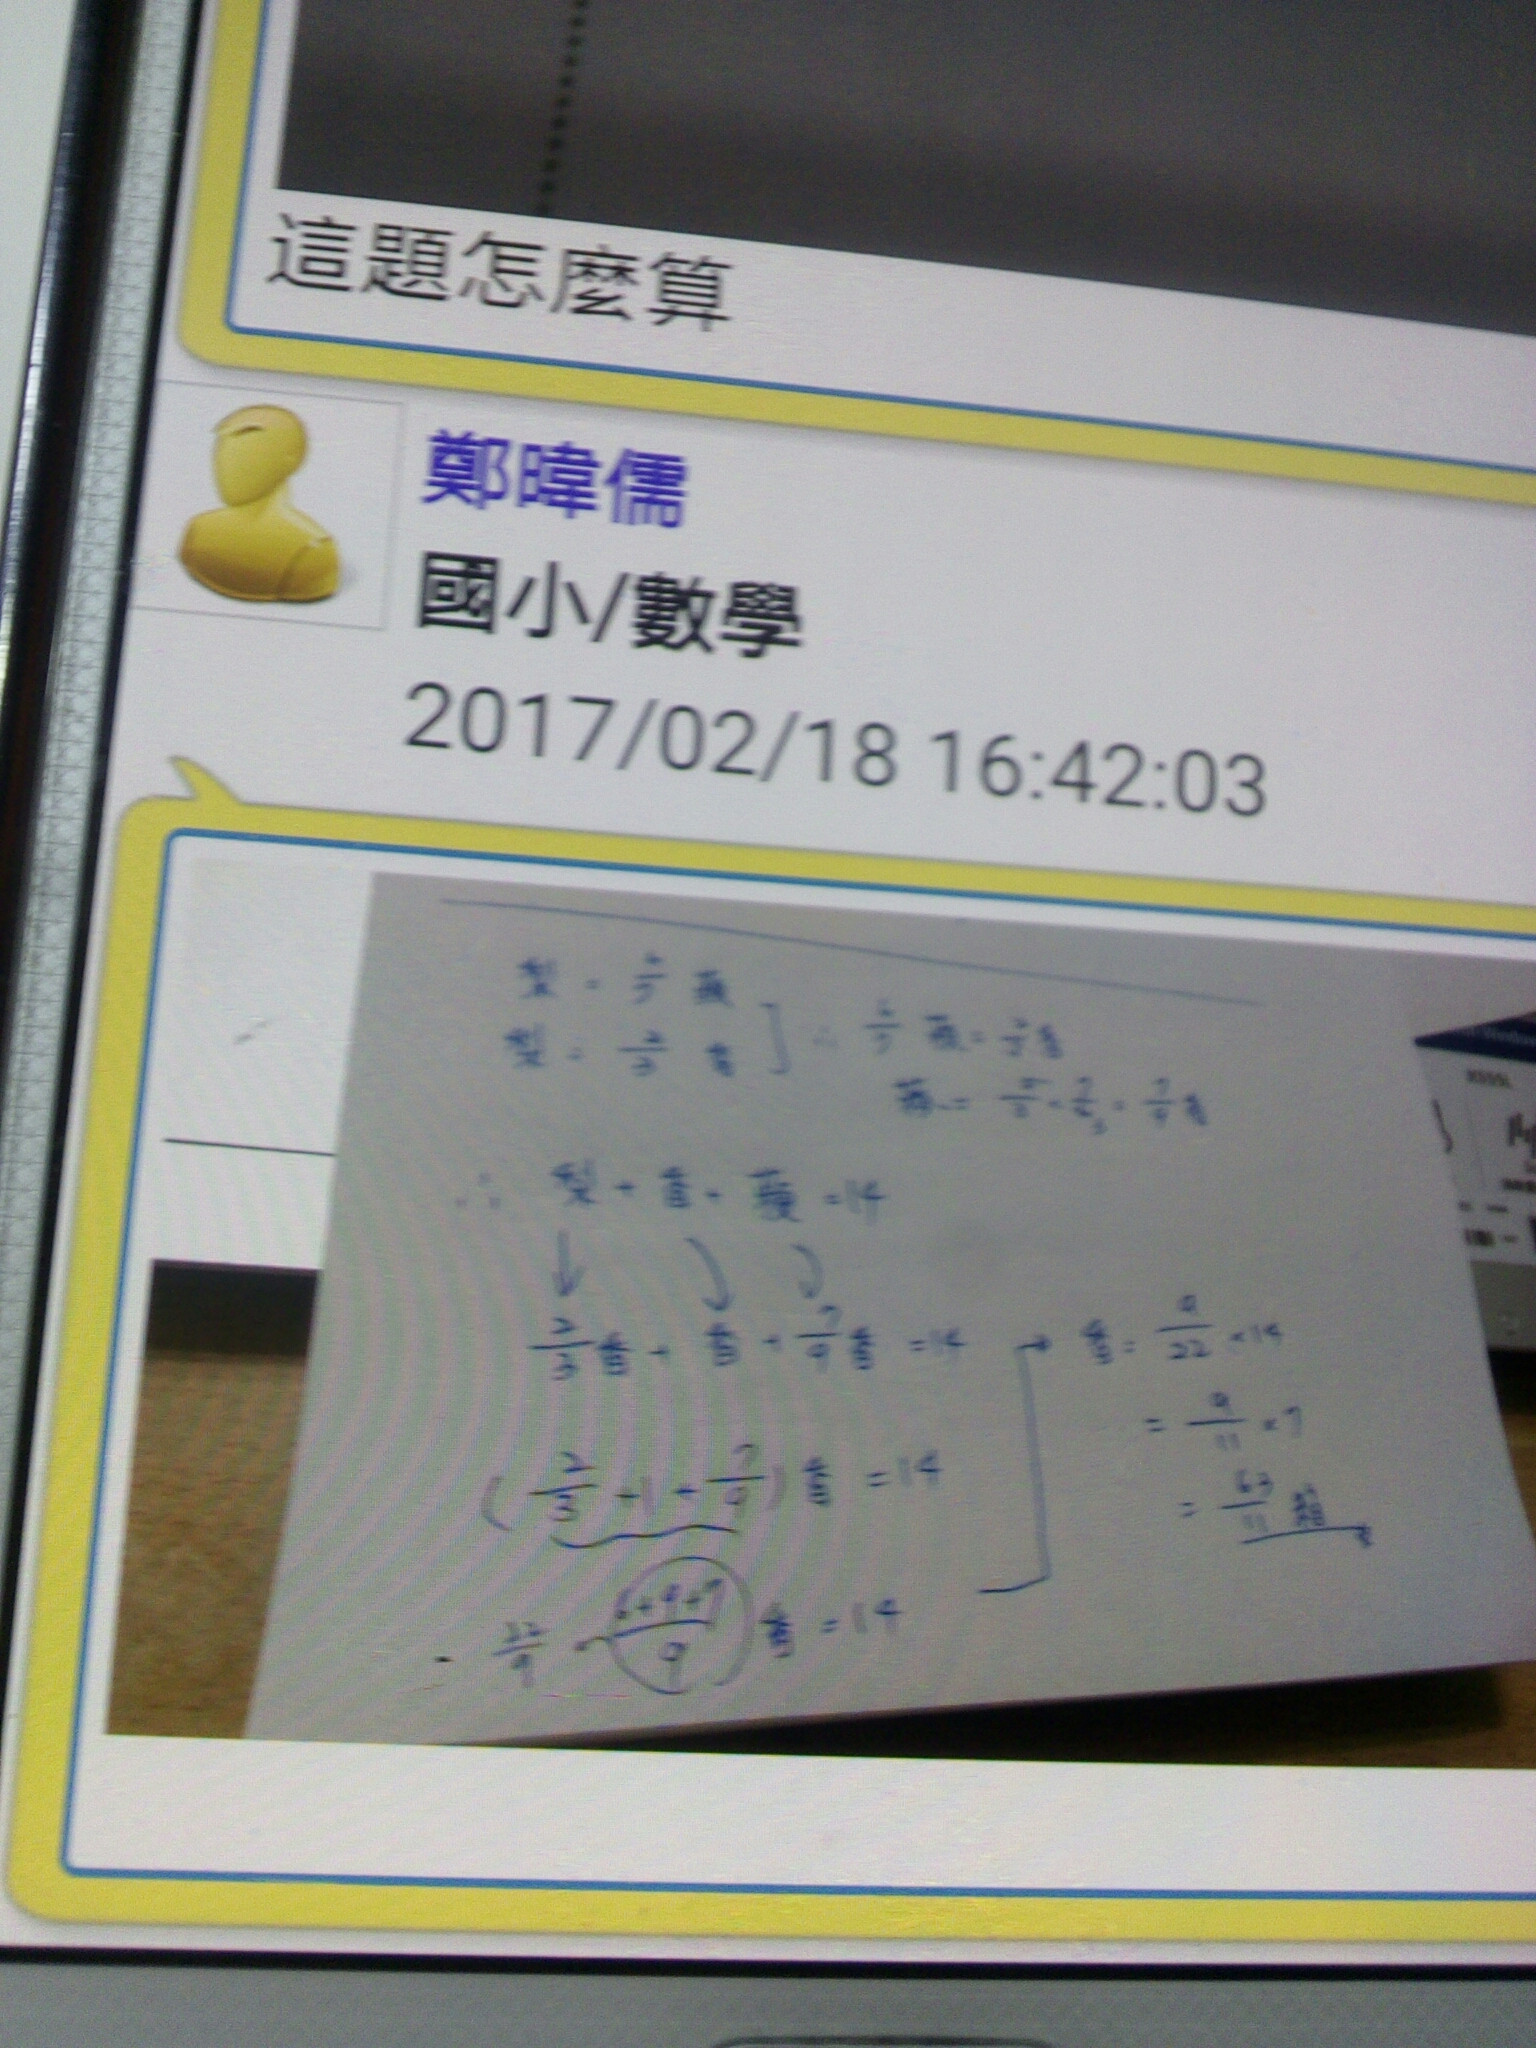 這題怎麼算
鄭暐儒
國小/數學
2017/02/18 16:42:03
梨 = 6/7 蘋
梨 = 2/3 香
∴ 6/7 蘋 = 2/3 香
蘋 = 7/9 香
∴ 梨 + 香 + 蘋 = 14
2/3 香 + 香 + 7/9 香 = 14
(2/3 + 1 + 7/9) 香 = 14
22/9 (6+9+7)/9 香 = 14
香 = 9/22 × 14
= 9/11 × 7
= 63/11